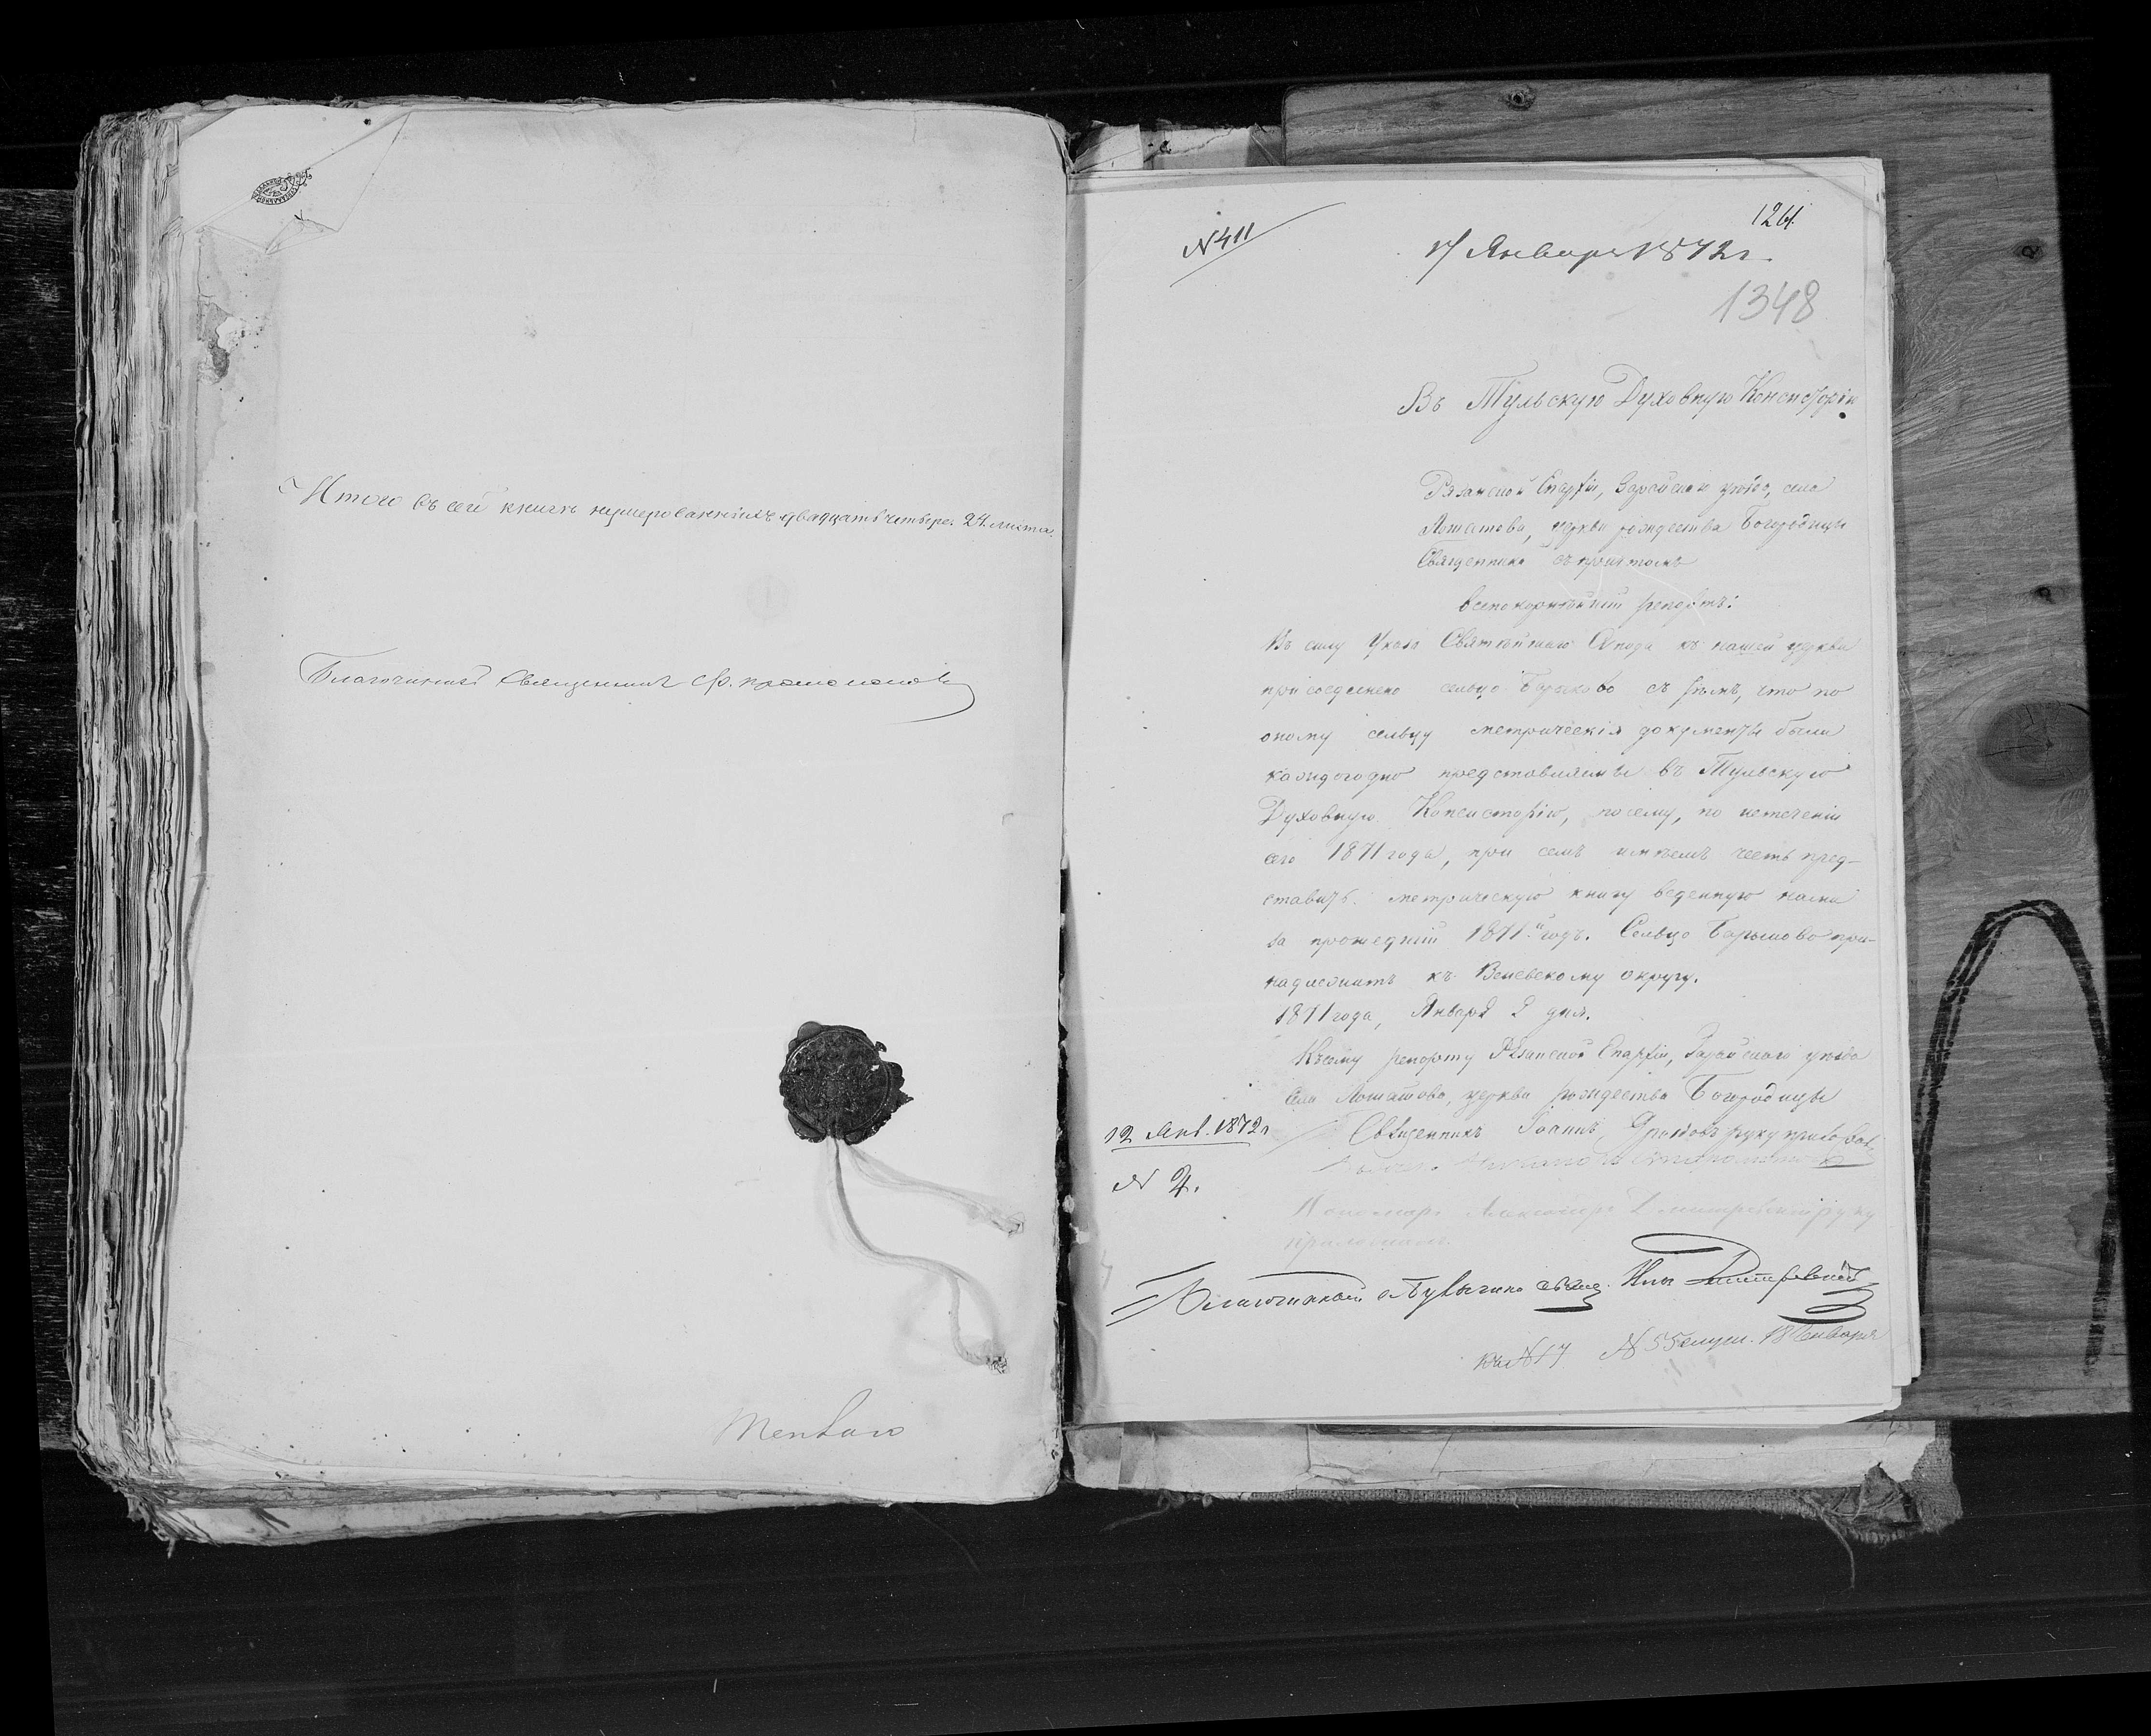 Итого въ сей книгѣ нумерованныхъ двадцать четыре 24 листа.
Благочинный Священникъ
№ 411
1261.
17 Января 1872 г.
1348
Въ Тульскую Духовную Консисторію
Рязанской Епархіи, Зарайскаго уѣзда, села
церкви рождества Богородицы
Священника съ причтомъ
всепокорнѣйшій репортъ:
Въ силу Указа Святѣйшаго Синода къ нашей церкви
присоединено сельцо съ тѣмъ, что по
оному сельцу метрическія документы были
каждогодно представляемы въ Тульскую
Духовную Консисторію, посему, по истеченіи
сего 1871 года, при семъ имѣемъ честь пред-
ставить метрическую книгу веденную нами
за прошедшій 1871й годъ. Сельцо при-
надлежитъ къ Веневскому округу.
1871 года, Января 2 дня.
Къ сему репорту Рязанской Епархіи, Зарайскаго уѣзда
села церкви рождества Богородицы
Священникъ Іоаннъ руку приложилъ
12 Янв. 1872 г
№ 2.
Пономарь Александръ Димитревскій руку
приложилъ
Благочинный свящ. Илія Димитревскій
къ № 17 № 55 слуш. 18 Января